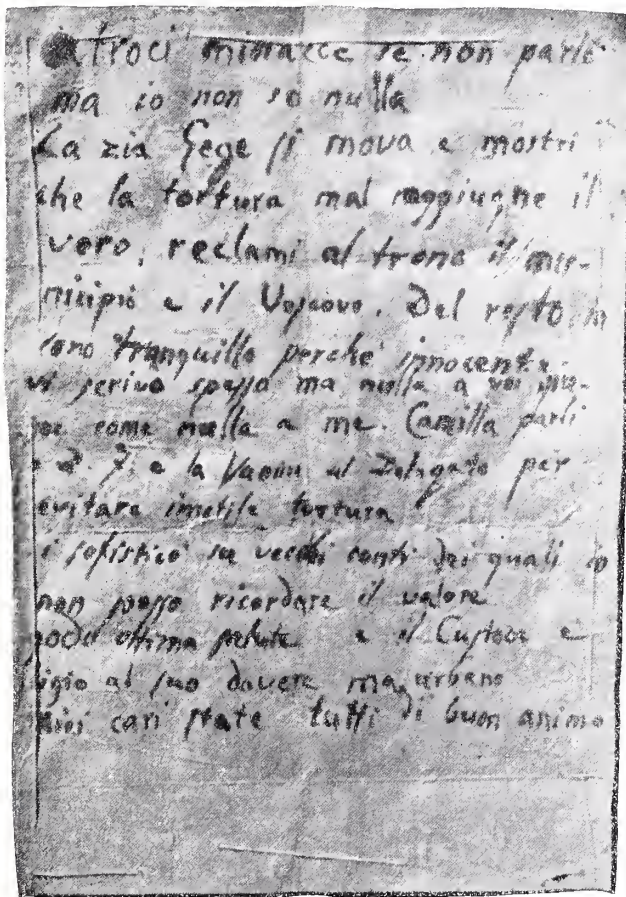 atroci minacce se non parlo
ma io non so nulla
La zia Gege si mova e mostri
che la tortura mal raggiunghe il
vero, reclami al trono il mu-
nicipio e il Vescovo. Del resto io
sono tranquillo perche' innocente.
vi scrivo spesso ma nulla a voi
come nulla a me. Camilla parli
a D. 7. e la al Delegato per
evitare inutile tortura
si sofisticò su vecchi conti dei quali io
non posso ricordare il valore
godo ottima salute e il Custode e
ligio al suo dovere ma urbano
Miei cari state tutti di buon animo